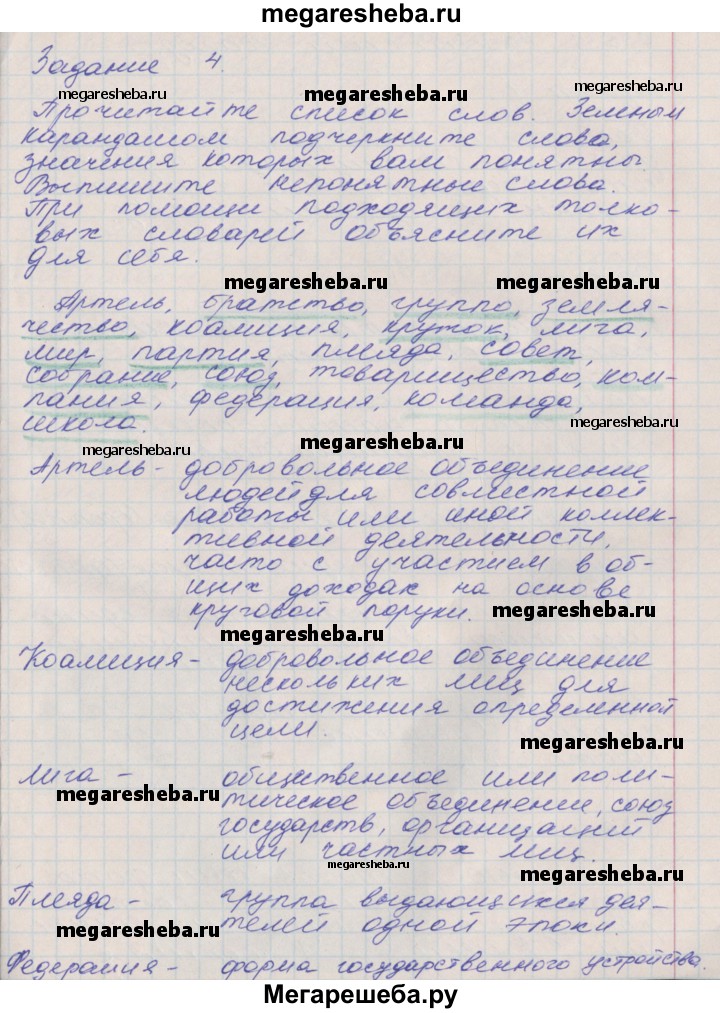 megaresheba.ru
Задание 4.
megaresheba.ru megaresheba.ru megaresheba.ru
Прочитайте список слов. Зеленым
карандашом подчеркните слова,
значения которых вам понятны.
Выпишите непонятные слова.
При помощи подходящих толко-
вых словарей объясните их
для себя.
megaresheba.ru megaresheba.ru
Артель, братство, группа, земля-
чество, коалиция, кружок, лига,
мир, партия, плеяда, совет,
собрание, союз, товарищество, ком-
пания, федерация, команда,
школа.
megaresheba.ru megaresheba.ru megaresheba.ru
Артель - добровольное объединение
людей для совместной
работы или иной коллек-
тивной деятельности,
часто с участием в об-
щих доходах на основе
круговой поруки.
megaresheba.ru
megaresheba.ru
Коалиция - добровольное объединение
нескольких лиц для
достижения определенной
цели.
megaresheba.ru
Лига - общественное или поли-
тическое объединение, союз
государств, организаций
или частных лиц.
megaresheba.ru
megaresheba.ru
Плеяда - группа выдающихся дея-
телей одной эпохи.
megaresheba.ru megaresheba.ru
Федерация - форма государственного устройства.
Мегарешеба.ру